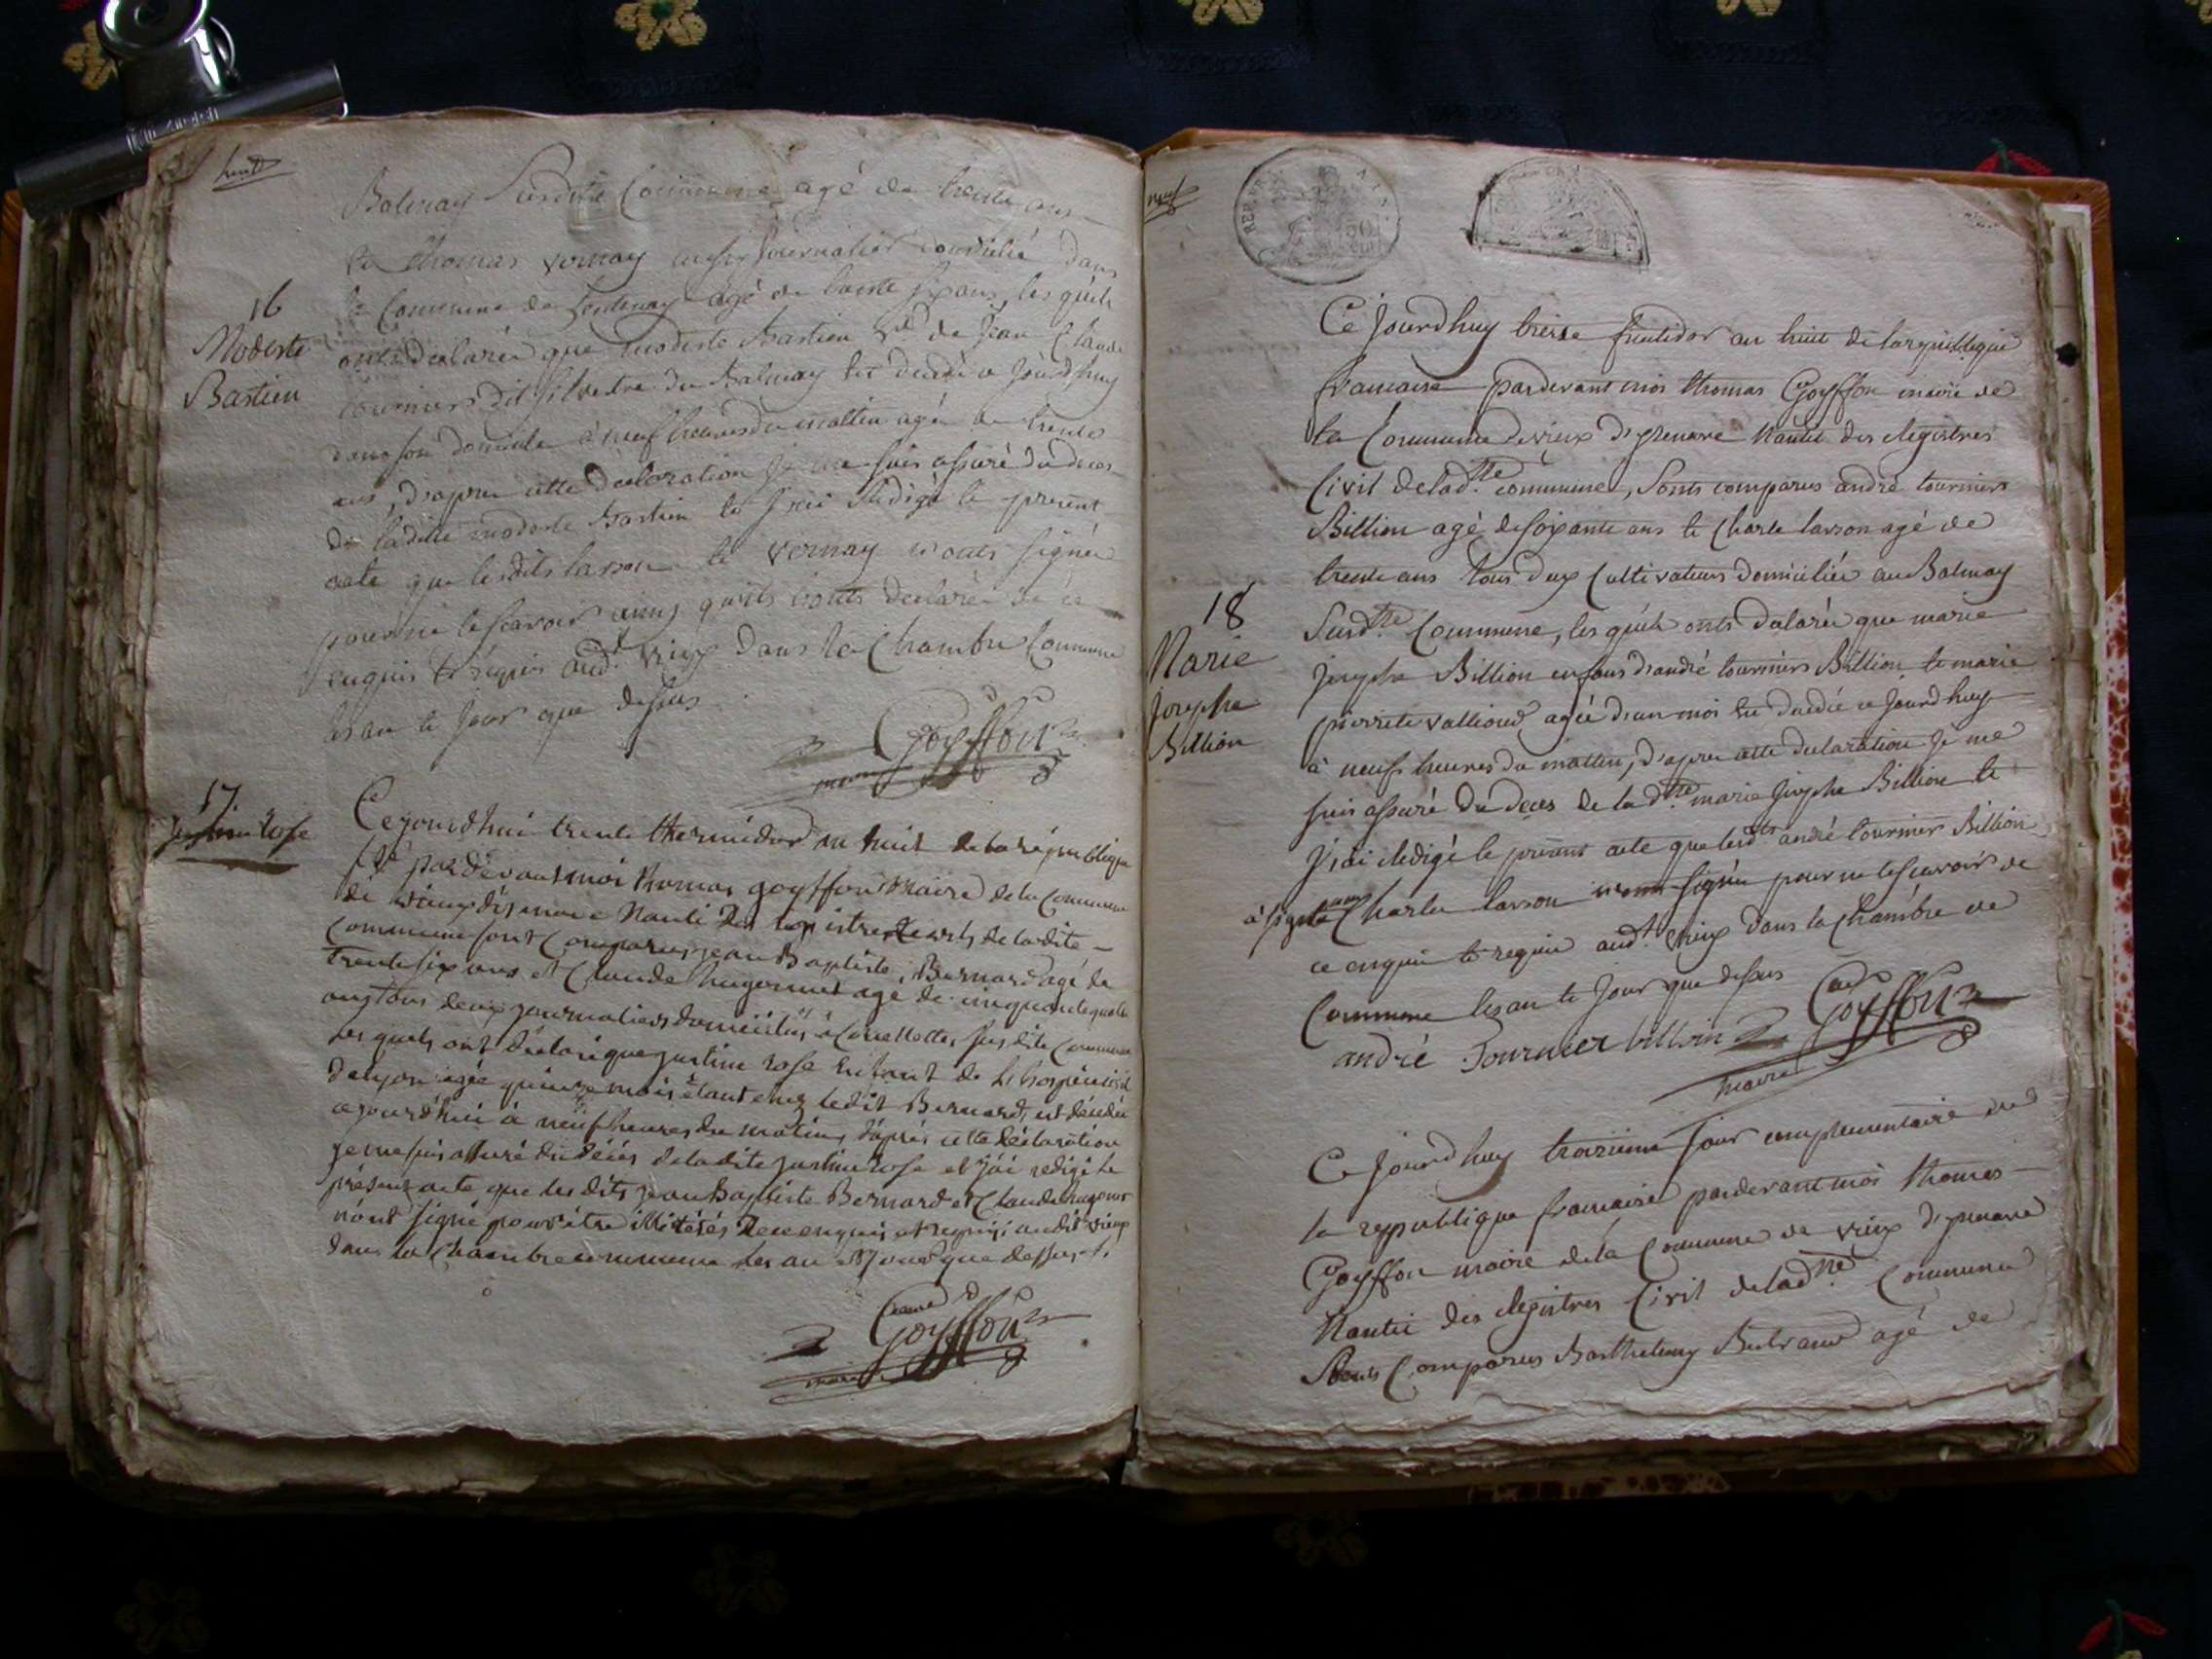 huit
Balmay Susditte Commune agé de trente ans
te Thomas Vernay aussy Journalier domicilié dans
la Commune de agé de trente six ans, les quels
16
Modeste
Bastien
onts declarée que modeste Bastien Ve de Jean Claude
tourniers dit Silvestre du Balmay est decedé ce Jourd'huy
dans son domicile à neuf heures du mattin agée de trente
ans, d'apres cette déclaration Je me suis assuré du deces
de laditte modeste Bastien te J'ai Redigé le present
acte que lesdits larson te Vernay n'onts signée
pour ne le scavoir ainsy qu'ils l'onts declarée de ce
enquis te requis aud.t Vieux dans la Chambre Commune
les an te Jour que dessus
Goyffon
maire
17.
Justine rose
Ce jourd'hui trente thermidor an huit de la république
f.se pardevant moi thomas goyffon Maire de la Commune
de vieux disenave Nanti des registres civils de la dite
Commune sont Comparus jean Baptiste Bernard agé de
trente six ans et Claude hugonnet agé de cinquante quatre
ans tous deux journaliers domiciliés à Corcellettes sus dite Commune
les quels ont déclaré que justine rose Enfant de L'hospice civil
de lyon agée quinze mois étant chez ledit Bernard, est décédée
cejourd'hui à neuf heures du matin, d'après cette déclaration
je me suis assuré du décès de la dite justine rose et j'ai redigé le
présent acte que les dits jean Baptiste Bernard et Claude hugonnet
n'ont signé pour être illitérés de ce enquis et requis; audit vieux
dans la Chambre commune les an et Jour que dessus.
Goyffon
maire
neuf
REP. FRA
50
Ce Jourd'huy treize fructidor an huit de la republique
francaise pardevant moi thomas Goyffon maire de
la Commune de vieux d'yzenave Nantie des Registres
Civil de lad.tte commune, Sonts comparus andré tourniers
Billion agé de soixante ans te Charle larson agé de
trente ans tous deux Cultivateurs domiciliée au Balmay
18
Marie
Josephe
Billion
Susd.tte Commune, les quels onts declarée que marie
Josephe Billion enfans d'andré tourniers Billion te marie
pierrette vallioud agée d'un moi est decedée ce Jourd'huy
à neufs heures du mattin, d'apres cette declaration Je me
suis assuré du deces de la d.tte marie Josephe Billion te
J'ai Redigé le present acte que lesd.ts andré tournier Billion
à signé Charle larson signée pour ne le scavoir de
ce enquis te requis aud.t Vieux dans la Chambre de
Commune les an te Jour que dessus
andré Tournier billion Goyffon
maire
Ce Jourd'huy troisieme Jour complementaire de
la republique francaise pardevant moi thomas
Goyffon maire de la Commune de vieux d'yzenave
Nantie des Registres Civil de lad.tte Commune
Sonts Comparus Barthelemy Bertrand agé de